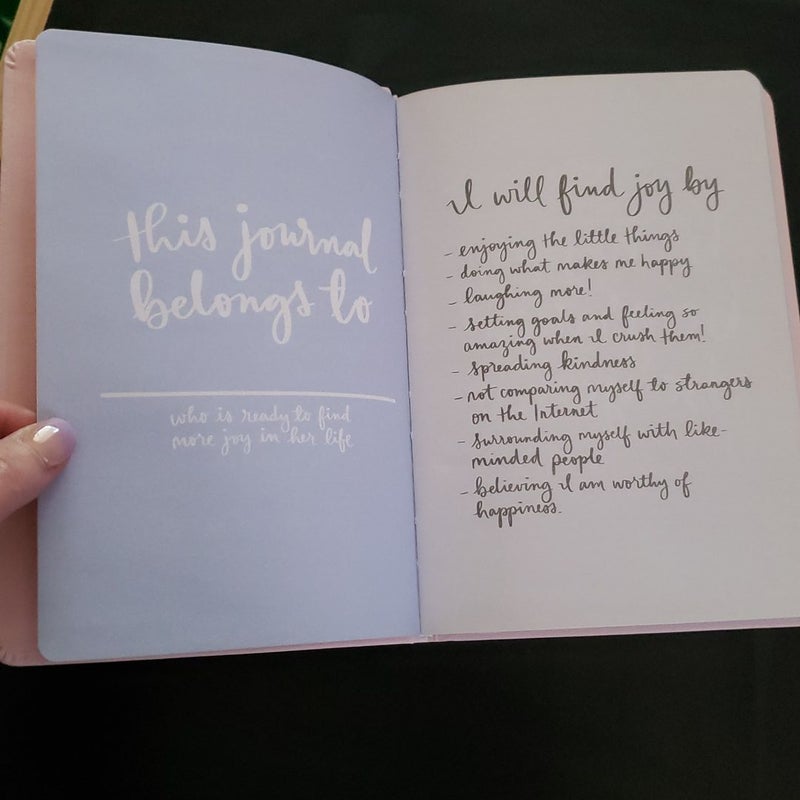 this journal
belongs to
who is ready to find
more joy in her life
I will find joy by
- enjoying the little things
- doing what makes me happy
- laughing more!
- setting goals and feeling so
amazing when I crush them!
- spreading kindness
- not comparing myself to strangers
on the Internet
- surrounding myself with like-
minded people
- believing I am worthy of
happiness.